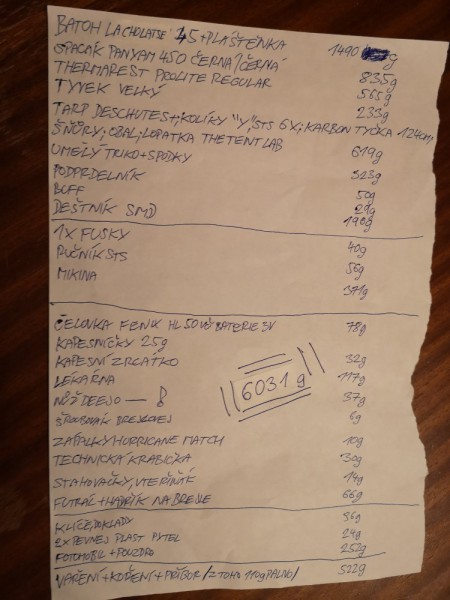 BATOH LACHOLATSE 45+PLÁŠTĚNKA 1490g
SPACÁK PANYAM 450 ČERNÁ/ČERNÁ 835g
THERMAREST PROLITE REGULAR 565g
TYVEK VELKÝ 233g
TARP DESCHUTES+;KOLÍKY "Y",STS 6X; KARBON TYČKA 124cm;
ŠŇŮRY; OBAL; LOPATKA THETENTLAB 619g
UMĚLÝ TRIKO+SPODKY 323g
PODPRDELNÍK 50g
BUFF 29g
DEŠTNÍK SMD 190g
1X FUSKY 40g
RUČNÍK STS 56g
MIKINA 371g
ČELOVKA FENIX HL50 VČ BATERIE 3V 78g
KAPESNÍČKY 25g
KAPESNÍ ZRCÁTKO 32g
LÉKÁRNA 117g
NŮŽ DEEJO — 37g
ŠROUBOVÁK BREJLOVEJ 6g
6031g
ZÁPALKY HURRICANE MATCH 10g
TECHNICKÁ KRABIČKA 130g
STAHOVAČKY, VTEŘIŇÁK 14g
FUTRÁL+HADŘÍK NA BREJLE 66g
KLÍČE, DOKLADY 96g
2X PEVNEJ PLAST PYTEL 24g
FOTOMOBIL+POUZDRO 252g
VAŘENÍ+KOŘENÍ+PŘÍBOR /Z TOHO 110g PALIVO/ 522g